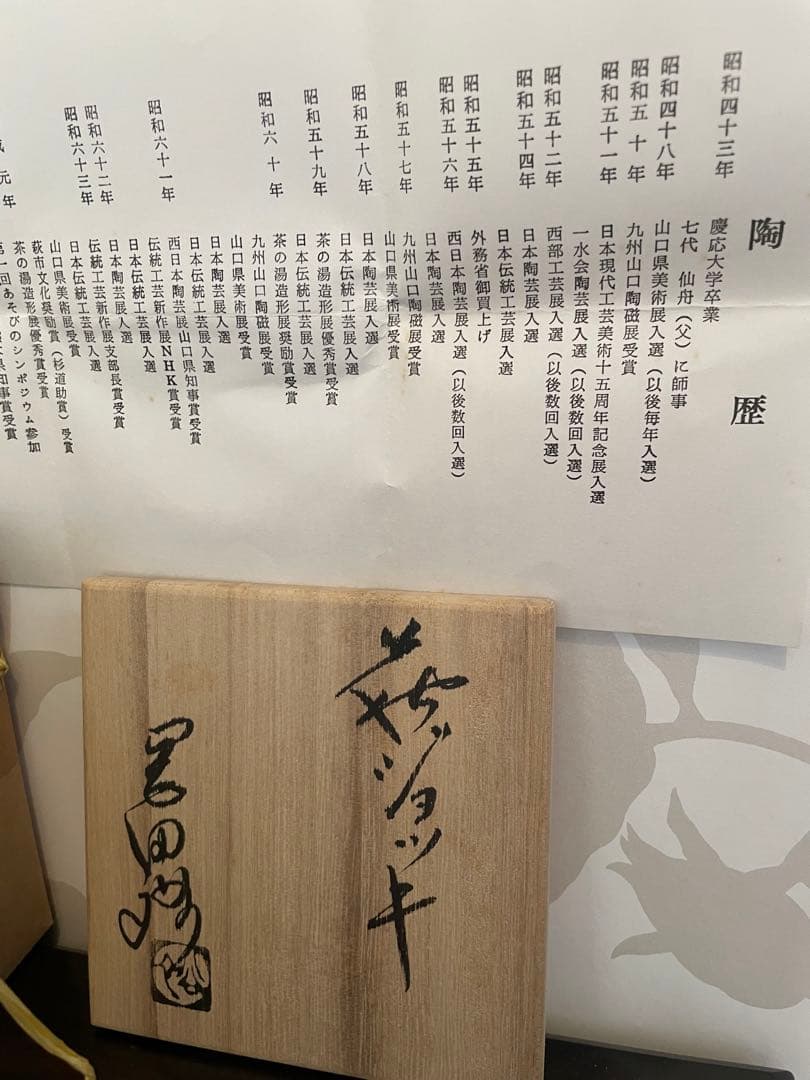 陶歴
昭和四十三年 慶応大学卒業
七代 仙舟(父)に師事
昭和四十八年 山口県美術展入選(以後毎年入選)
昭和五十年 九州山口陶磁展受賞
昭和五十一年 日本現代工芸美術十五周年記念展入選
一水会陶芸展入選(以後数回入選)
昭和五十二年 西部工芸展入選(以後数回入選)
昭和五十四年 日本陶芸展入選
日本伝統工芸展入選
昭和五十五年 外務省御買上げ
昭和五十六年 西日本陶芸展入選(以後数回入選)
日本陶芸展入選
昭和五十七年 九州山口陶磁展受賞
山口県美術展受賞
昭和五十八年 日本陶芸展入選
日本伝統工芸展入選
昭和五十九年 茶の湯造形展優秀賞受賞
日本伝統工芸展入選
昭和六十年 茶の湯造形展奨励賞受賞
九州山口陶磁展受賞
山口県美術展受賞
日本陶芸展入選
日本伝統工芸展入選
昭和六十一年 西日本陶芸展山口県知事賞受賞
伝統工芸新作展NHK賞受賞
日本伝統工芸展入選
昭和六十二年 日本陶芸展入選
昭和六十三年 伝統工芸新作展支部長賞受賞
日本伝統工芸展入選
山口県美術展受賞
萩市文化奨励賞(杉道助賞)受賞
元年 茶の湯造形展優秀賞受賞
第一回あそびのシンポジウム参加
県知事賞受賞
萩ジョッキ
岡田裕